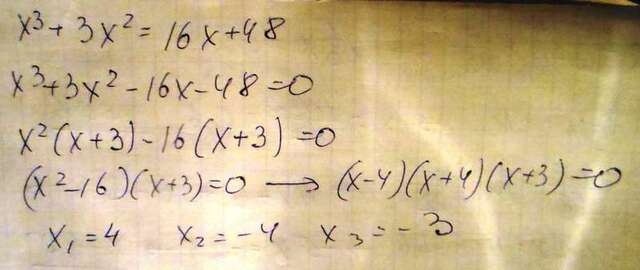 x³ + 3x² = 16x + 48
x³ + 3x² - 16x - 48 = 0
x²(x + 3) - 16(x + 3) = 0
(x² - 16)(x + 3) = 0 → (x - 4)(x + 4)(x + 3) = 0
x₁ = 4 x₂ = -4 x₃ = -3